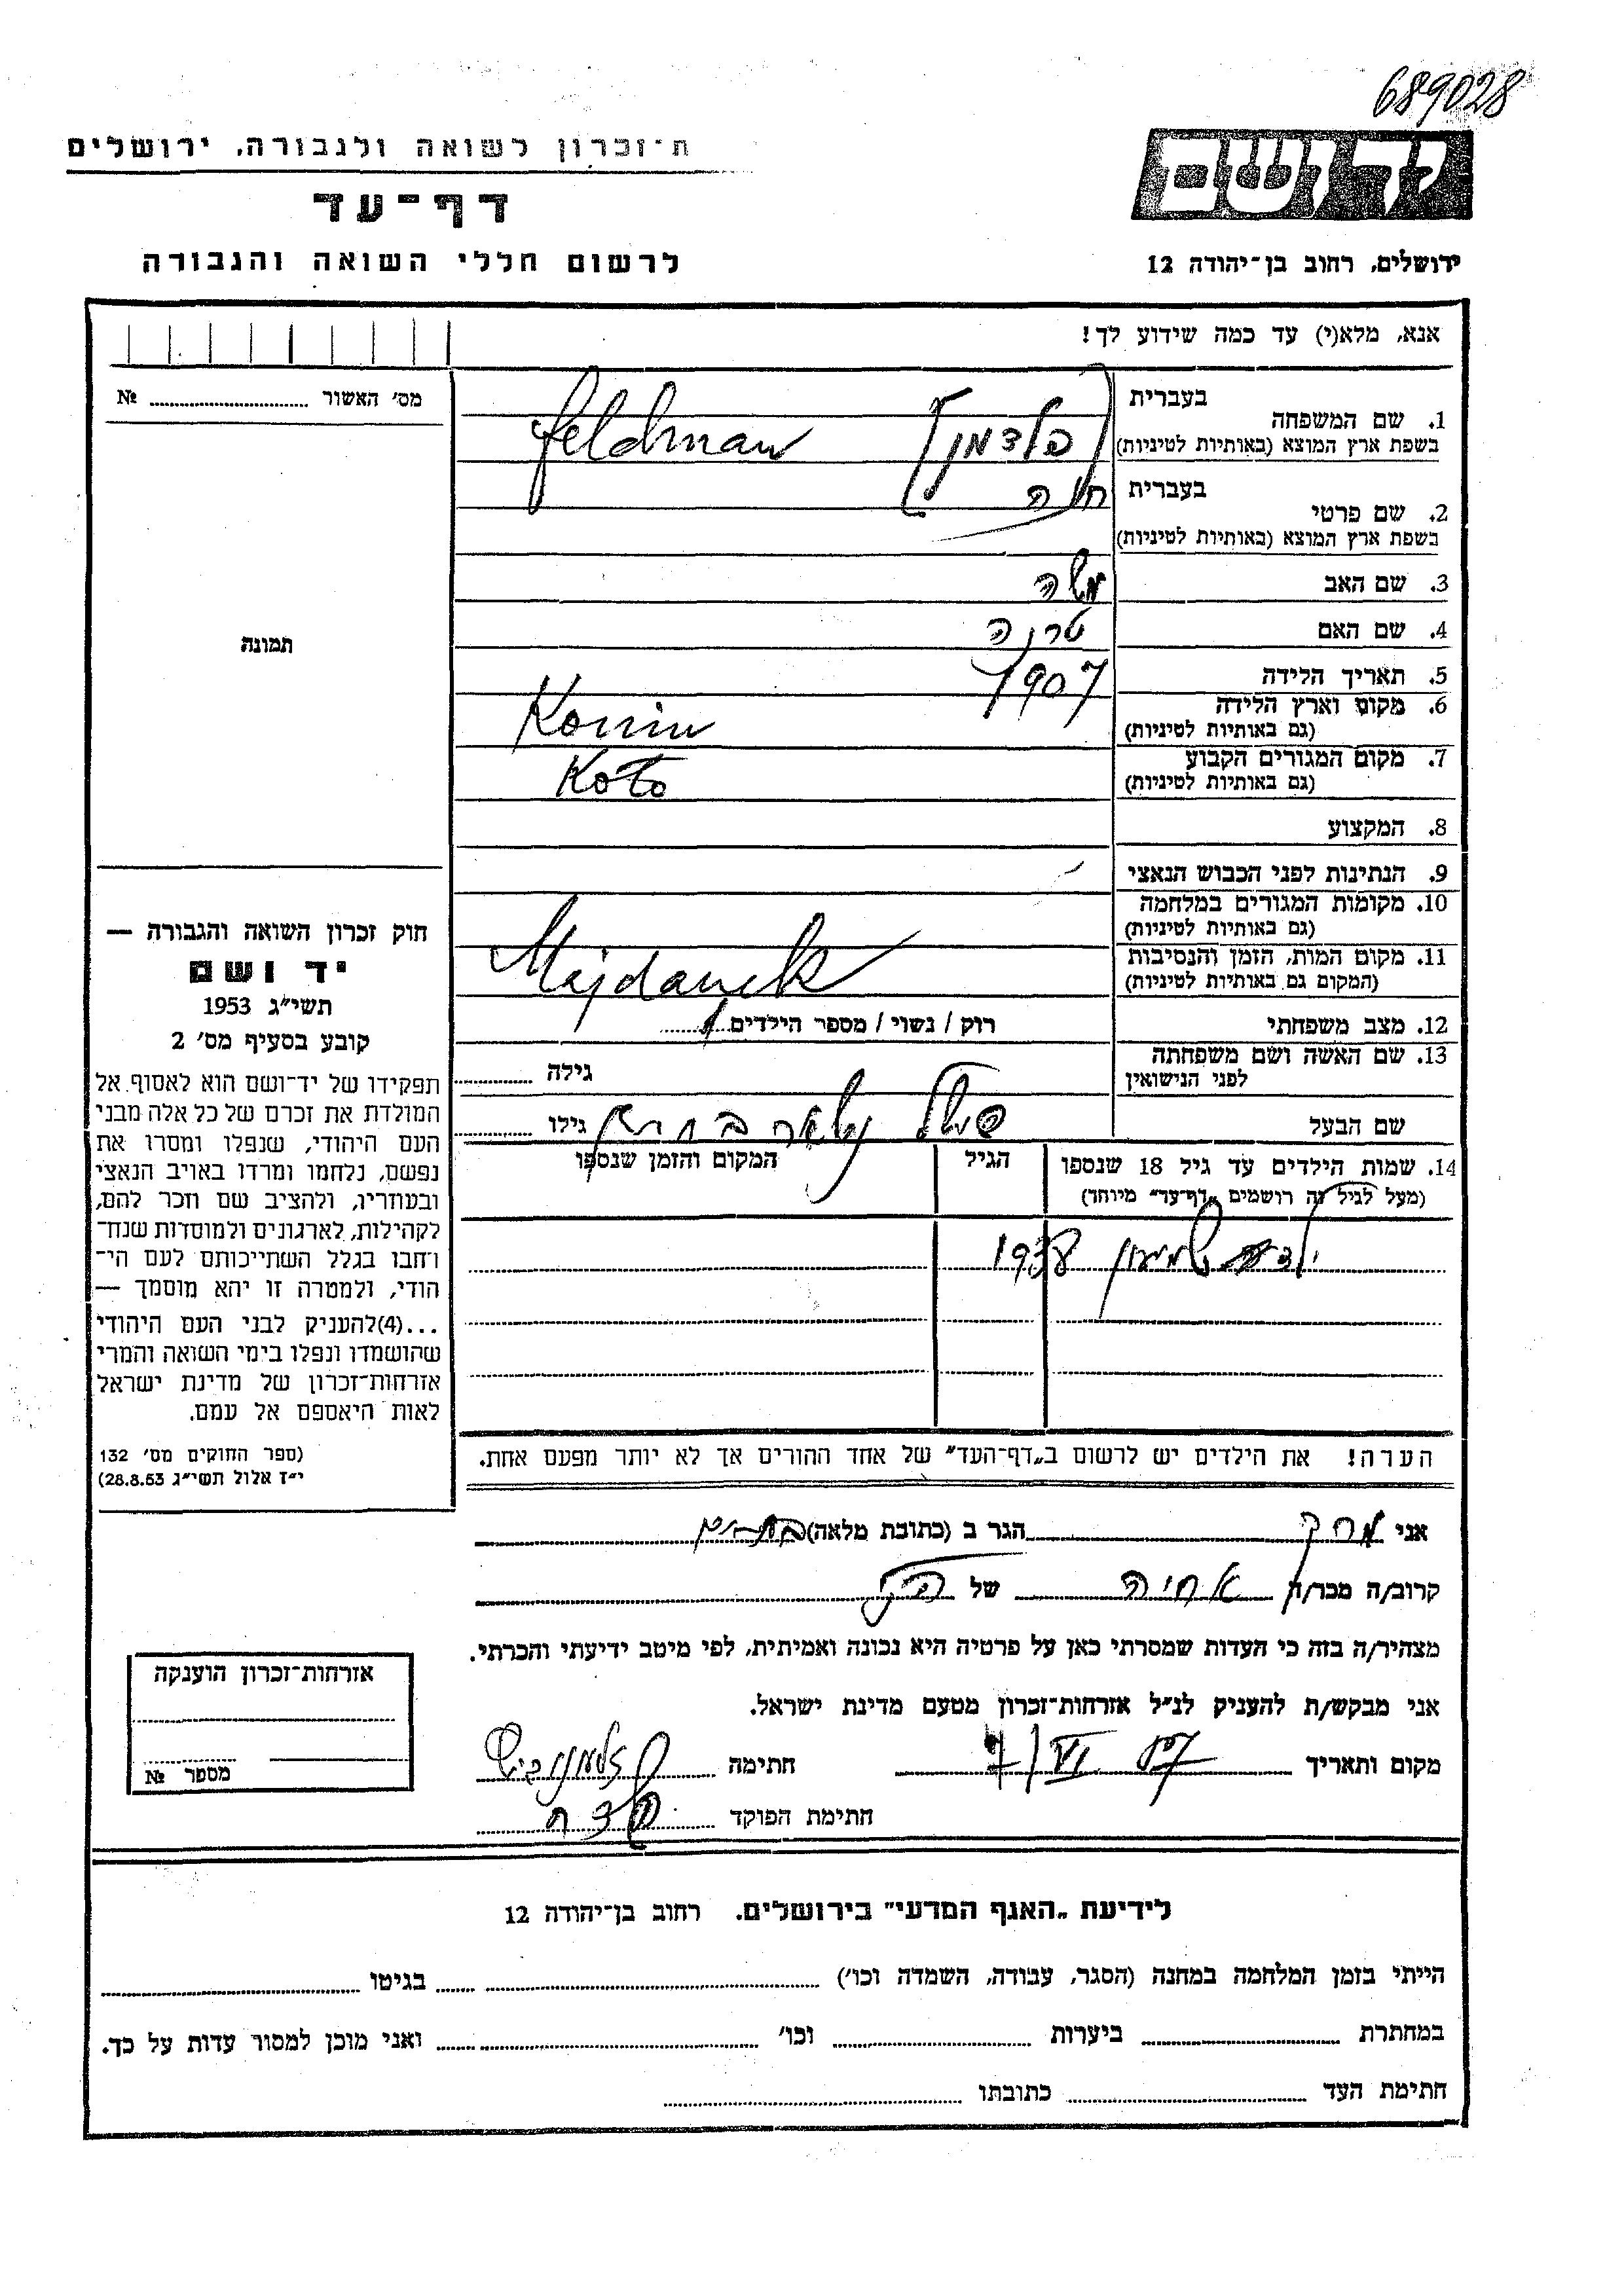 689028
ת-זכרון לשואה ולגבורה, ירושלים
דף-עד
לרשום חללי השואה והגבורה
יד ושם
ירושלים, רחוב בן-יהודה 12
אנא, מלא(י) עד כמה שידוע לך!
מס׳ האשור № 
תמונה
חוק זכרון השואה והגבורה —
יד ושם
תשי״ג 1953
קובע בסעיף מס׳ 2
תפקידו של יד-ושם הוא לאסוף אל
המולדת את זכרם של כל אלה מבני
העם היהודי, שנפלו ומסרו את
נפשם, נלחמו ומרדו באויב הנאצי
ובעוזריו, ולהציב שם וזכר להם,
לקהילות, לארגונים ולמוסדות שנח-
רחבו בגלל השתייכותם לעם הי-
הודי, ולמטרה זו יהא מוסמך —
...(4)להעניק לבני העם היהודי
שהושמדו ונפלו בימי השואה והמרי
אזרחות-זכרון של מדינת ישראל
לאות היאספם אל עמם.
(ספר החוקים מס׳ 132
י״ז אלול תשי״ג 28.8.53)
1. שם המשפחה בעברית פלדמן Feldman
בשפת ארץ המוצא (באותיות לטיניות)
2. שם פרטי בעברית חוה
בשפת ארץ המוצא (באותיות לטיניות)
3. שם האב משה
4. שם האם
5. תאריך הלידה 1907
6. מקום וארץ הלידה Konin
(גם באותיות לטיניות)
7. מקום המגורים הקבוע Koło
(גם באותיות לטיניות)
8. המקצוע
9. הנתינות לפני הכבוש הנאצי
10. מקומות המגורים במלחמה
(גם באותיות לטיניות)
11. מקום המות, הזמן והנסיבות Majdanek
(המקום גם באותיות לטיניות)
12. מצב משפחתי רוק / נשוי / מספר הילדים 1
13. שם האשה ושם משפחתה גילה
לפני הנישואין
שם הבעל גילו
14. שמות הילדים עד גיל 18 שנספו הגיל המקום והזמן שנספו
(מעל לגיל זה רושמים „דף-עד״ מיוחד)
שמעון 1938
הערה! את הילדים יש לרשום ב„דף-העד״ של אחד ההורים אך לא יותר מפעם אחת.
אני הגר ב (כתובת מלאה)
קרוב/ה מכר/ה של
מצהיר/ה בזה כי העדות שמסרתי כאן על פרטיה היא נכונה ואמיתית, לפי מיטב ידיעתי והכרתי.
אני מבקש/ת להעניק לנ״ל אזרחות-זכרון מטעם מדינת ישראל.
מקום ותאריך חתימה
חתימת הפוקד
אזרחות-זכרון הוענקה
מספר №
לידיעת „האגף המדעי״ בירושלים. רחוב בן-יהודה 12
הייתי בזמן המלחמה במחנה (הסגר, עבודה, השמדה וכו׳) בגיטו
במחתרת ביערות וכו׳ ואני מוכן למסור עדות על כך.
חתימת העד כתובתו